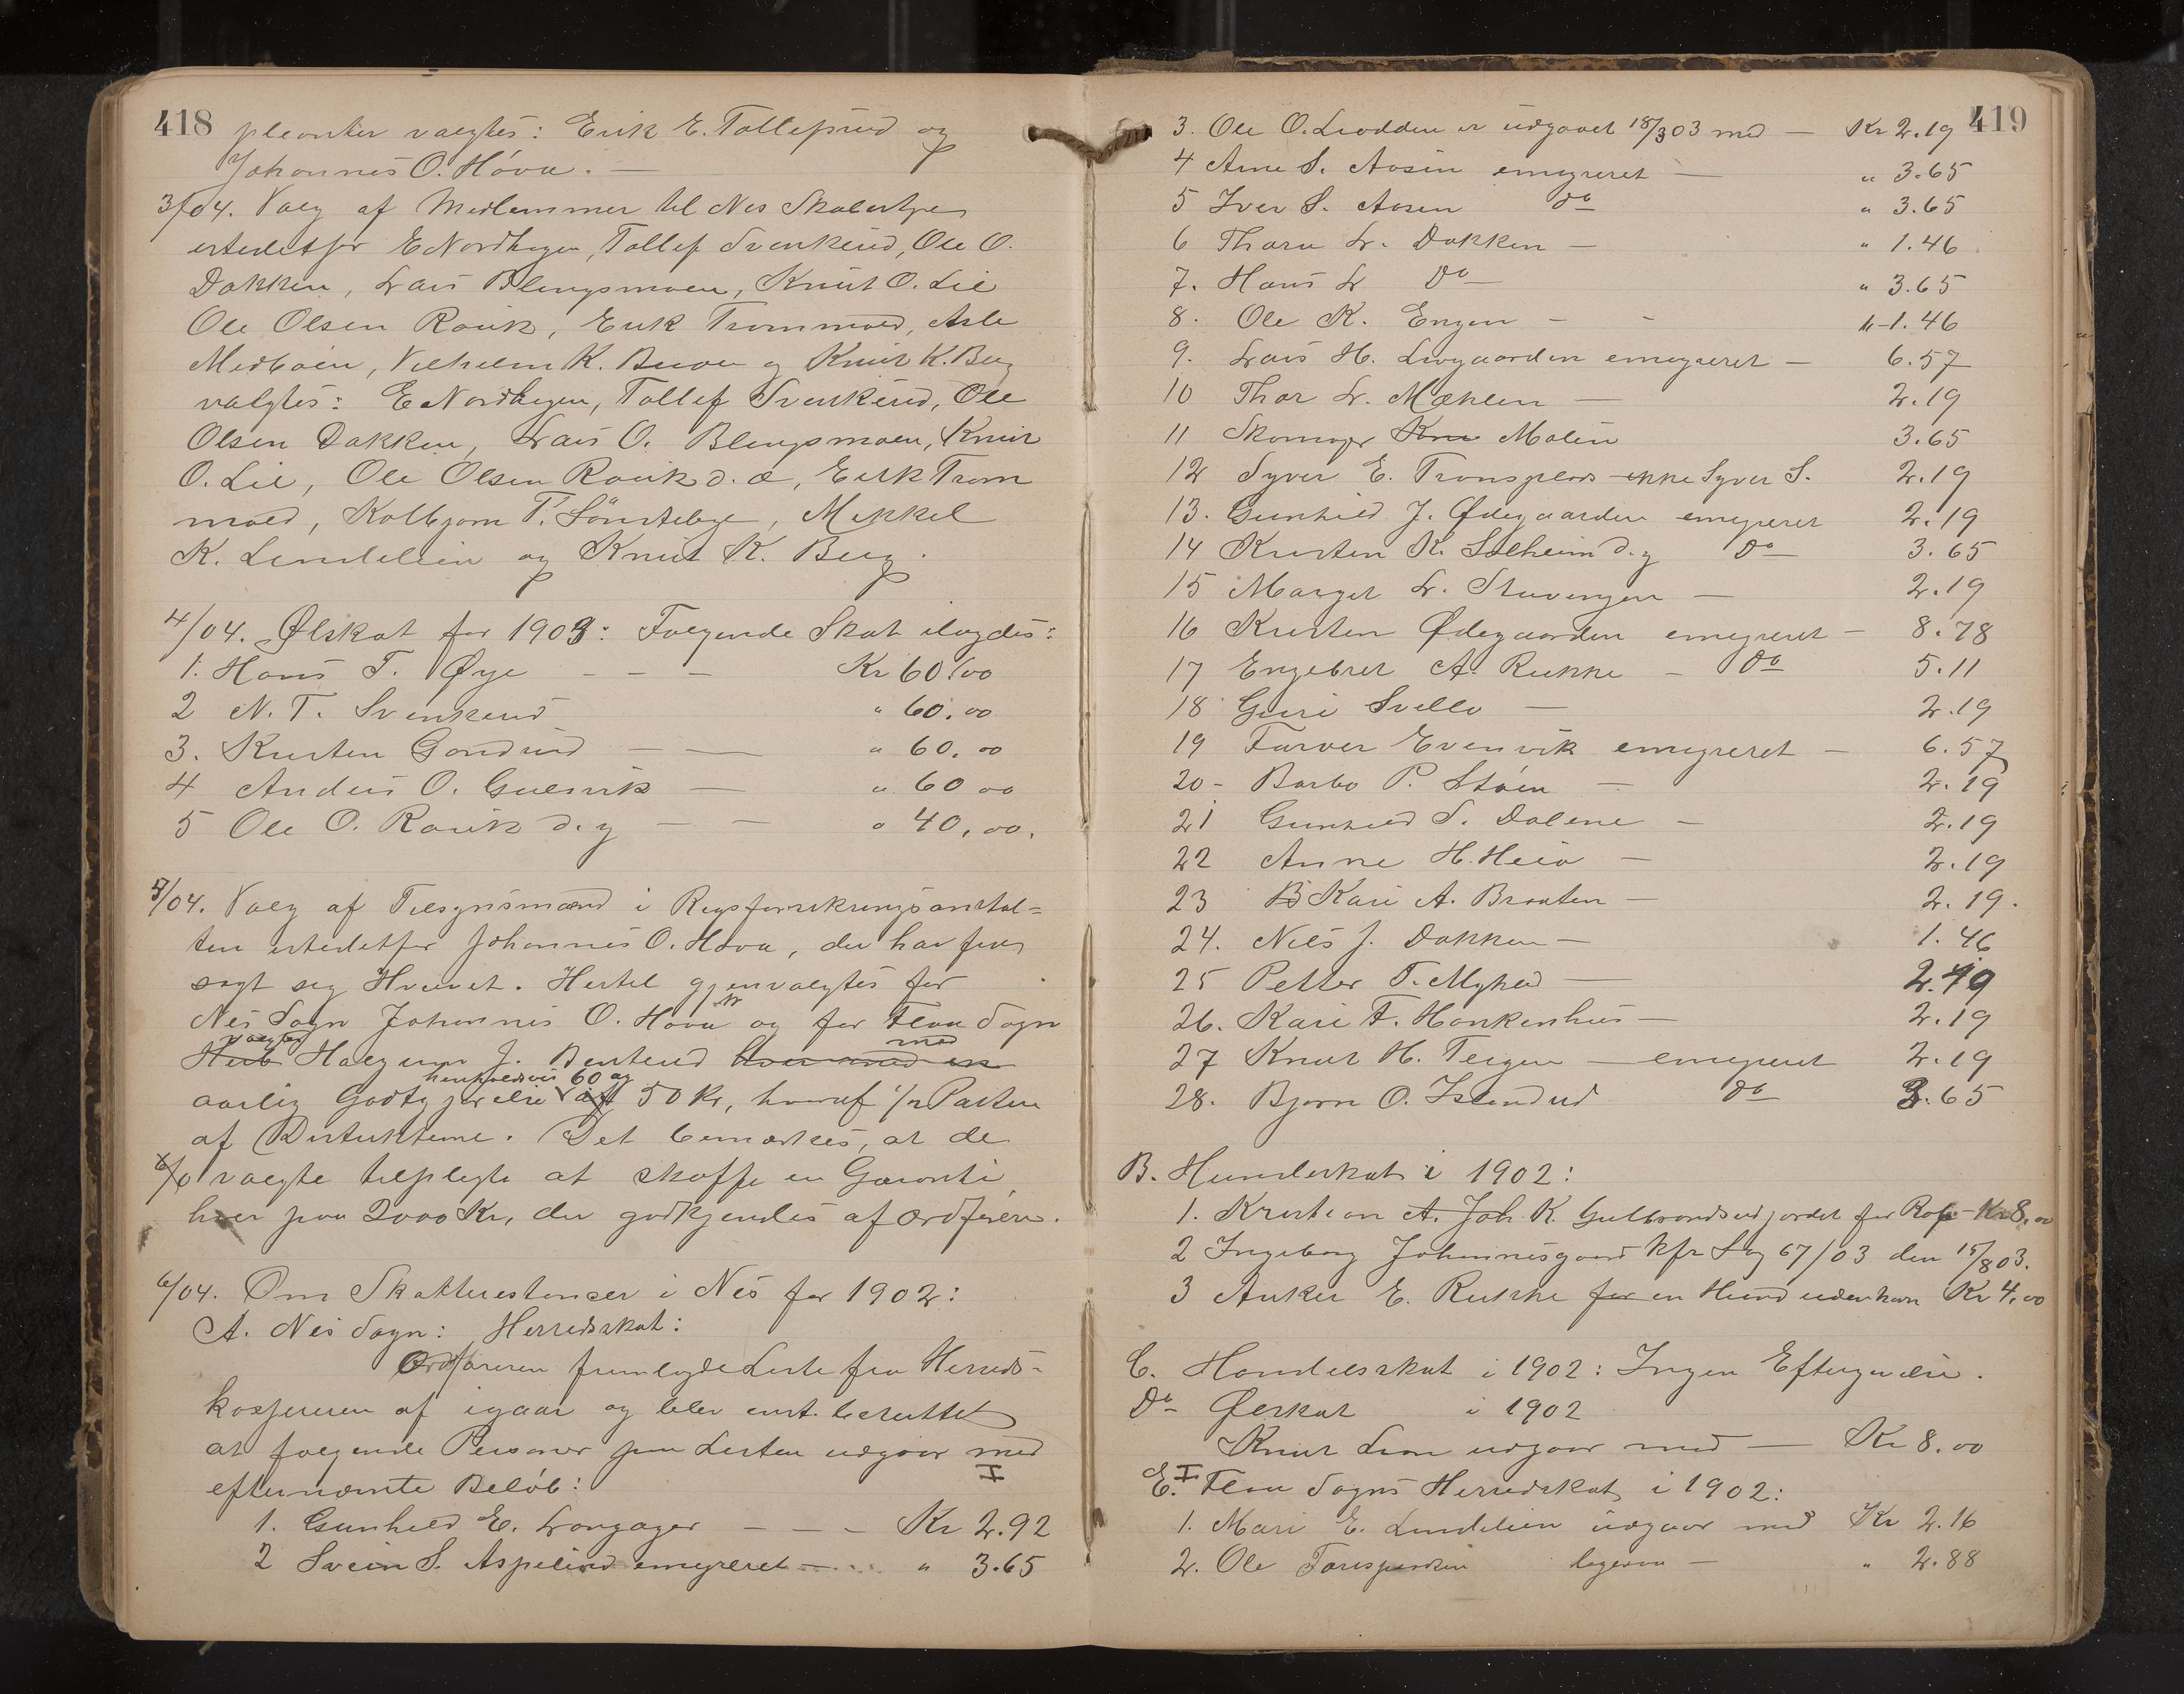 418
pleanter valgtes: Erik E. Tollefsrud og
Johannes O. Hóva. —
3/04. Valg af Medlemmer til Nes Skolestyre
istedetfor E Nordhagen, Tollef Svenkerud, Ole O.
Dokken, Lars Blengsmoen, Knut O. Lie
Ole Olsen Rouk, Erik Trommoed, Asle
Medboen, Vilhelm K. og Knut K. Berg
valgtes: E Nordhagen, Tollef Svenkerud, Ole
Olsen Dokken, Lars O. Blengsmoen, Knut
O. Lie, Ole Olsen Rouk d. æ, Erik Trom
moed, Kolbjørn T. Sönsteby, Mekkel
K. Lindelien og Knut K. Berg.
4/04. Ølskat for 1903: Følgende Skat ilagdes:
1. Hans T. Øye - - - Kr 60.00
2 N. T. Svenkerud " 60.00
3. Kristen Gandrud — — " 60.00
4 Anders O. Gulsvik — " 60 00
5 Ole O. Rouk d. y — — " 40,00.
5/04. Valg af Tilsynsmænd i Rigsforsikringsanstal=
ten istedetfor Johannes O. Hóva, der har fra
sagt sig Hvervet. Hertil gjenvalgtes for
Nes Sogn Johannes O. Hova og for Flaa Sogn
valgtes Halgrim J. Bentsrud Hver med en med
aarlig Godtgjørelse henholdsvis 60 og af 50 Kr, hvoraf 1/2 Parten
af Distrikterne. Det bemærkes, at de
valgte tilpligtes at skaffe en Garanti,
hver paa 2000 Kr, der godkjendes af Ordføreren.
6/04. Om Skatterestanser i Nes for 1902:
A. Nes Sogn: Herredsskat:
Ordføreren fremlagde Liste fra Herreds=
kassereren af igaar og blev enst. besluttet
at følgende Personer paa Listen udgaar med
efternævnte Beløb: I
1. Gunhild E. Langager - - - Kr 2.92
2 Svein S. Aspelind emigreret — " 3.65
419
3. Ole O. Lindden er udgaaet 18/3 03 med — Kr 2.19
4 Arne S. Aasen emigreret — " 3.65
5 Iver S. Aasen do " 3.65
6 Thora L. Dokken — " 1.46
7. Hans L do — " 3.65
8. Ole K. Engen - - " 1.46
9. Lars H. Livgaarden emigreret — 6.57
10 Thor L. Mæhlen — 2.19
11 Skomager Knu Molin 3.65
12 Syver E. Tronsplads ikke Syver S. 2.19
13. Gunhild J. Ødegaarden emigreret 2.19
14 Kristen K. Solheim d. y do 3.65
15 Margit L. Stavengen — 2.19
16 Kristen Ødegaarden emigreret — 8.78
17 Engebret A. Rukke - do 5.11
18 Guri Svello — 2.19
19 Tarver Evenvik emigreret — 6.57
20 - Barbo P. Støen — 2.19
21 Gunhild S. Dalene — 2.19
22 Anne H. Heia — 2.19
23 Kari A. Braaten — 2.19.
24. Nils J. Dokken — 1.46
25 Petter T. Myhed — 2.19
26. Kari T. Haukenhus — 2.19
27 Knut H. Teigen — emigreret 2.19
28. Bjørn O. Islandrud do 3.65
B. Hundeskat i 1902:
1. Kristian A. Joh. K. Gulbrandsrudjordet for Rop - Kr 8.00
2 Ingeborg Johannesgaard kfr Sag 67/03 den 15/8 03.
3 Anker E. Rukke for en Hund udenhavn Kr 4.00
C. Handelsskat i 1902: Ingen Eftergivelse.
Do Ølskat i 1902
Knut Lian udgaar med — Kr 8.00
E. I Flaa Sogns Herredskat i 1902:
1. Mari E. Lindelien udgaar med Kr 2.16
2. Ole ligesaa — " 2.88